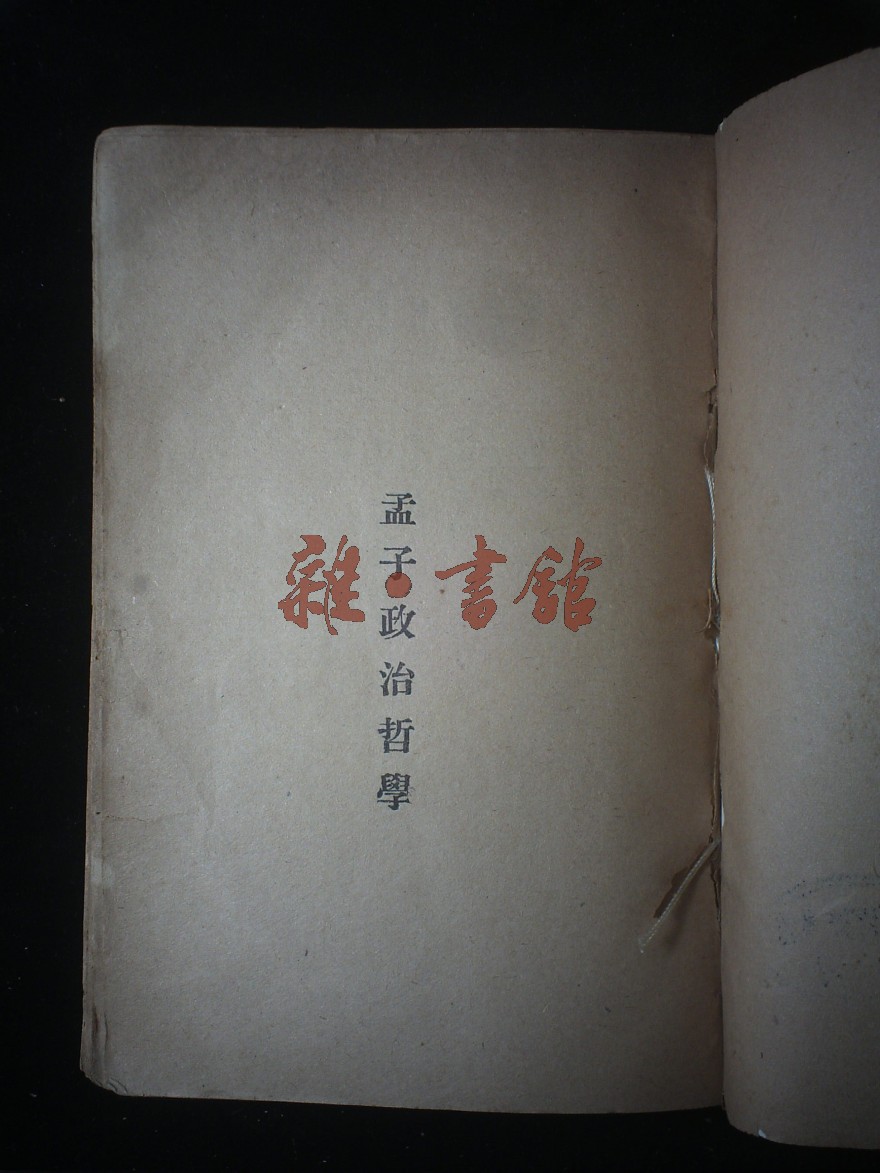 孟子政治哲學
雜·書館